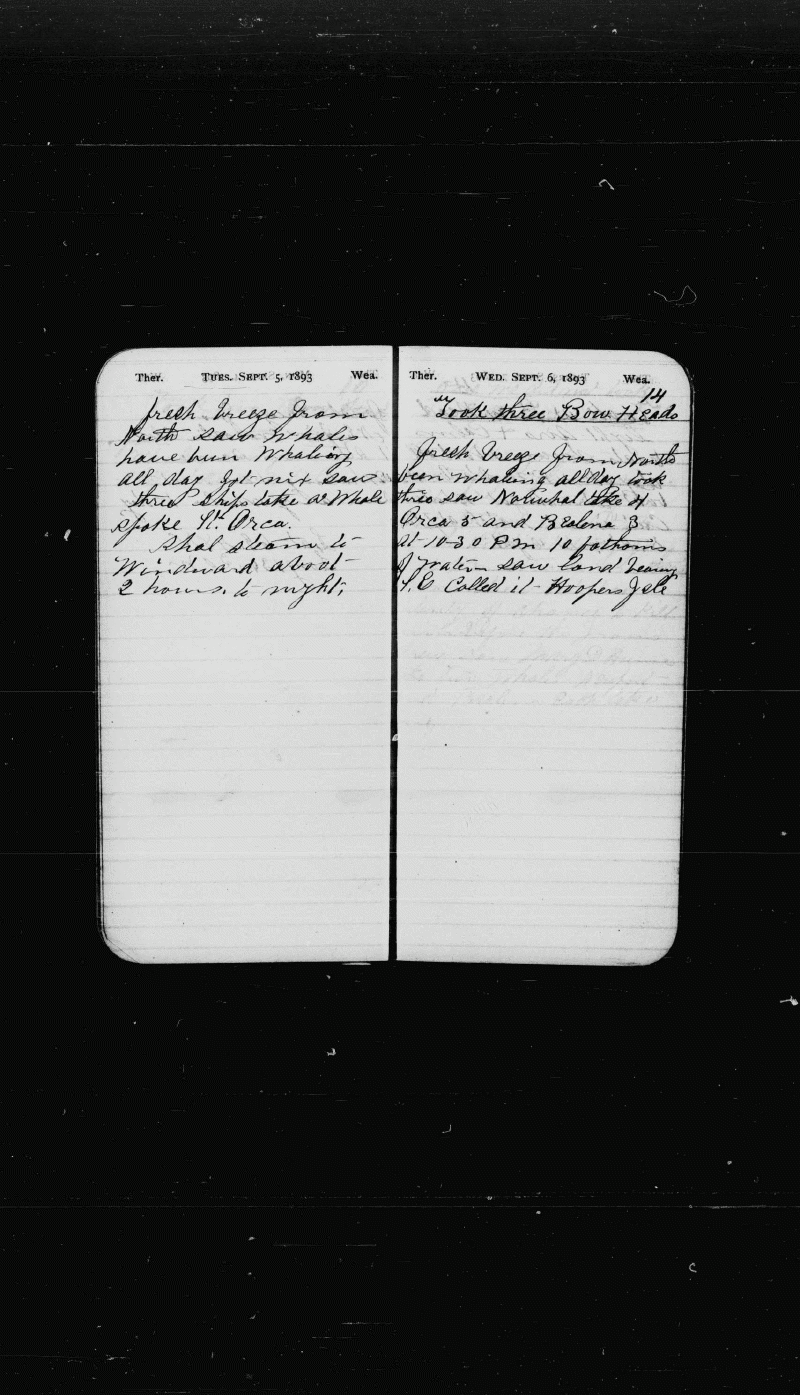 Ther. Tues. Sept. 5, 1893 Wea.
fresh breeze from
North saw Whales
have been Whaling
all day Got nix saw
three ships take a Whale
spoke St. Orca.
Shal steam to
Windward about
2 hours. to night.
Ther. Wed. Sept. 6, 1893 Wea.
14
"Took three Bow Heads
fresh breeze from North
been Whaleing all day took
three saw Narwhal take 4
Orca 5 and Bealena 3
at 10-30 P M 10 fathoms
of water saw land bearing
S. E Called it Hoopers Isle